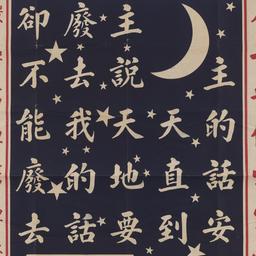 主的話安
天直到
主說天地要
廢去我的話
卻不能廢去